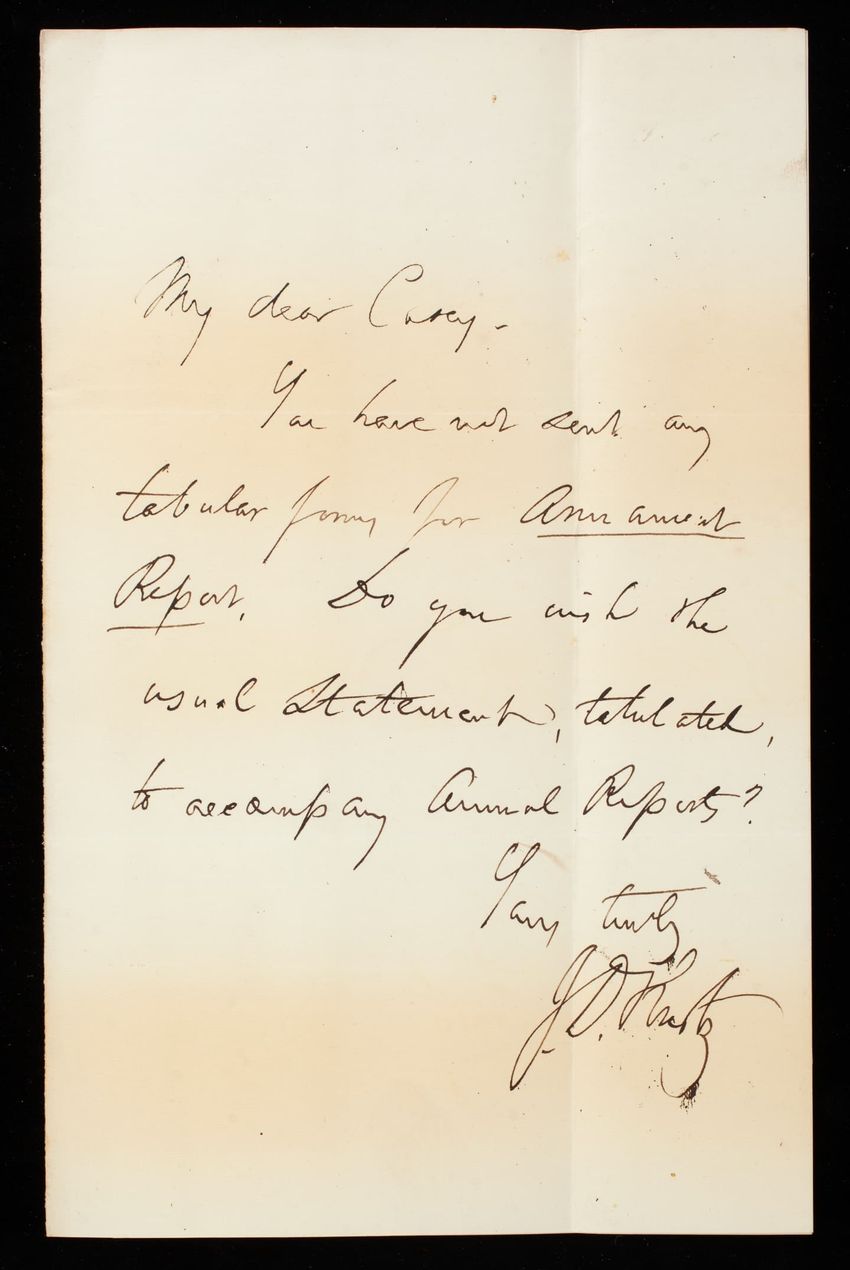 My dear Casey -
You have not sent any
tabular forms for Armament
Report. Do you wish the
usual Statements, tabulated,
to accompany Annual Reports?
Yours truly
J. D. Kurtz